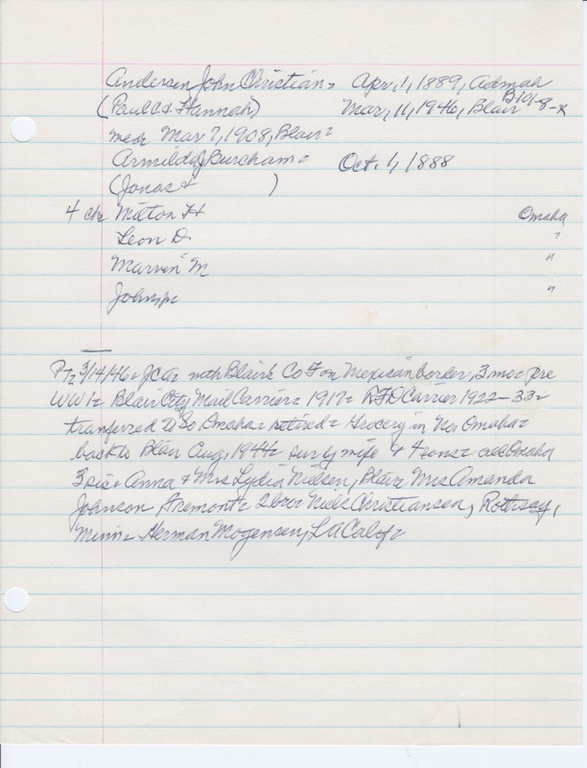 Andersen John Christian - Apr. 1, 1889, Admah
(Paul C & Hannah) Mar, 11, 1946, Blair B101-8-x
med - Mar 7, 1908, Blair -
Armilda J Burcham - Oct. 1, 1888
(Jonas & )
4 ch - Milton H Omaha
Leon D. "
Marvin M "
John jr "
PT - 3/14/46 - JCA - with Blair's Co F on Mexican border, 3 mos - pre
WW1 - Blair City Mail Carrier - 1917 - RFD Carrier 1922-33 -
tranferred to So. Omaha - retired - Grocery in No. Omaha -
back to Blair Aug, 1944 - surv by wife & 4 sons - all Omaha
3 sis - Anna & Mrs Lydia Nielsen, Blair - Mrs Amanda
Johnson Fremont - 2 bro - Niels Christiansen, Rothsay,
Minn - Herman Mogensen, LA Calif -